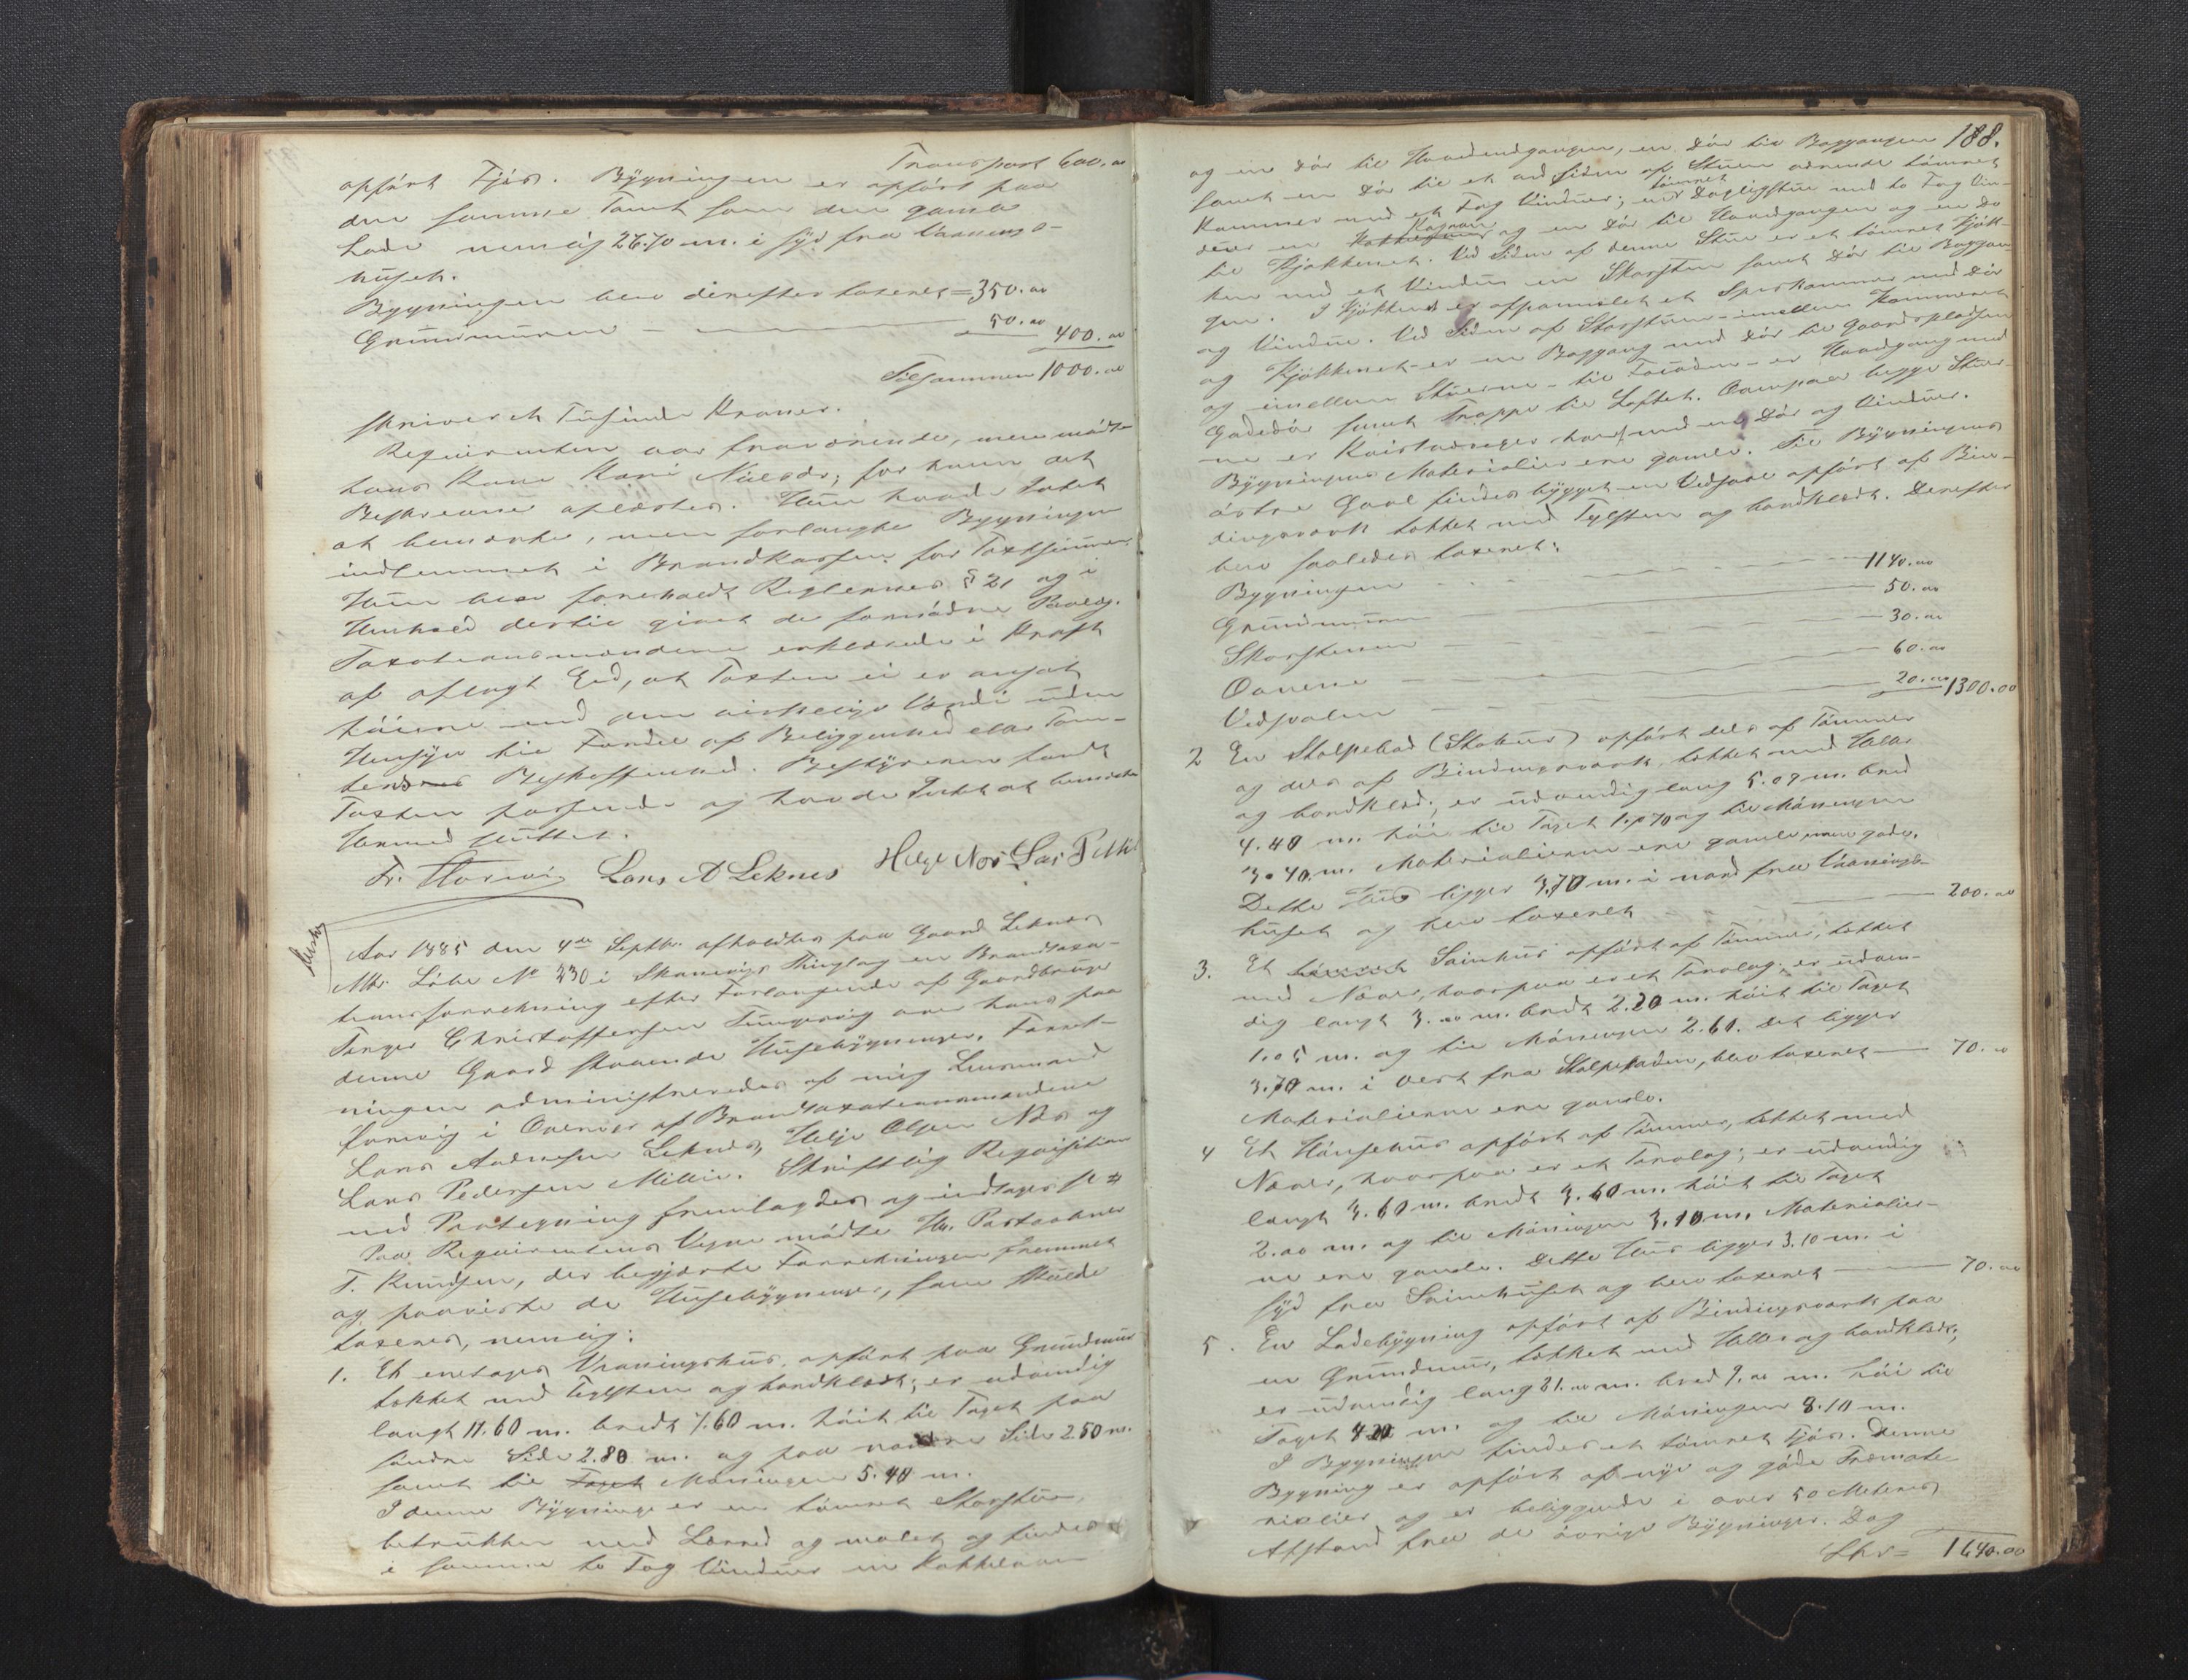 Transport 600.00
opført Fjøs. Bygningen er opført paa
den samme Tomt som den gamle
Lade nemlig 26.70 m. i syd fra Vaanings-
huset.
Bygningen blev derefter taxeret = 350.00
Grundmuren — 50.00 400.00
Tilsammen 1000.00
skriver et Tusinde Kroner.
Requirenten var fraværende, men mødte
hans Kone Kari Nielsdr; for hvem det
Beskrevne oplæstes. Hun havde Intet
at bemærke, men forlangte Bygningen
indlemmet i Brandkassen for Taxtsummen.
Hun blev foreholdt Reglernes § 21 og i
Henhold dertil givet de fornødne Paalæg.
Taxationsmændene erklærede i Kraft
af aflagt Eed, at Taxten ei er ansat
høiere end den virkelige Værdi uden
Hensyn til Fordel af Beliggenhed eller Tom-
tens Beskaffenhed. Bestyreren fandt
Taxten passende og havde Intet at bemærke
Hermed sluttet.
Fr. Lars A Leknes Helge Nes Lars P Milie
Aar 1885 den 4de Septbr. afholdtes paa Gaard Leknes
Mtr. Løbe No 230 i Skaneviks Thinglag en Brandtaxa-
tionsforretning efter Forlangende af Gaardbruger
Tørger Christoffersen Tungesvig over hans paa
denne Gaard staaende Husebygninger. Forret-
ningen administreredes af mig Lensmand
i Overvær af Brandtaxationsmændene
Lars Andersen Leknes, Helje Olsen Nes og
Lars Pedersen Milie. Skriftlig Requisition
med Paategning fremlagdes og indtages #
Paa Requirentens Vegne mødte Hr.
T. Knudsen, der begjærte Forretningen fremmet
og paaviste de Husebygninger, som skulde
taxeres, nemlig:
1. Et enetages Vaaningshus, opført paa Grundmur
tækket med Teglsten og bordklædt; er udvendig
langt 11.60 m. bredt 7.60 m. høit til Taget paa
søndre Side 2.80 m. og paa nordre Side 2.50 m.
samt til Taget Møningen 5.40 m.
I denne Bygninge er en tømret Storstue,
betrukken med Lærred og malet og findes
i samme to Fag Vinduer en Kakkelovn
188.
og en Dør til Hovedindgangen, en Dør til Baggangen
samt en Dør til et ved Siden af Stuen værende tømret
Kammer med et Fag Vinduer; en tømret Dagligstue med to Fag Vin-
duer en og en Dør til Hovedgangen og en Do
til Kjøkkenet. Ved Siden af denne Stue er et tømret Kjøk-
ken med et Vindue en Skorsten samt Dør til Baggan-
gen. I Kjøkkenet er afpanelet et Spiskammer med Dør
og Vindue. Ved Siden af Storstuen - imellem Kammeret
og Kjøkkenet - er en Baggang med Dør til Gaardspladsen
og imellem Stuerne - til Facaden - er Hovedgang med
Gadedør samt Trappe til Loftet. Ovenpaa begge Stuer-
ne er med en Dør og Vinduer.
Bygningens Materialier ere gamle. Til Bygningens
østre Gavl findes bygget en Vedsval opført af Bin-
dingsværk tækket med Teglsten og bordklædt. Derefter
blev saaledes taxeret:
Bygningen — 1140.00
Grundmuren — 50.00
Skorstenen — 30.00
Ovnene — 60.00
Vedsvalen — 20.00 1300.00
2 En Stolpebod (Stabur) opført dels af Tømmer
og dels af Bindingsværk, tækket med Heller
og bordklæd; er udvendig lang 5.09 m. bred
4.40 m. høi til Taget 1.70 og til Møningen
3.40 m. Materialierne ere gamle, men gode.
Dette Hus ligger 3.70 m. i nord fra Vaanings-
huset og blev taxeret — 200.00
3. Et Smiehus opført af Tømmer, tækket
med Næver, hvorpaa er et Torvlag; er udven-
dig langt 3.00 m. bredt 2.20 m. høit til Taget
1.05 m. og til Møningen 2.60. Det ligger
3.70 m. i Vest fra Stolpeboden, blev taxeret — 70.00
Materialierne ere gamle.
4 Et Hønsehus opført af Tømmer, tækket med
Næver, hvorpaa er et Torvlag; er udvendig
langt 3.60 m. bredt 3.60 m. høit til Taget
2.00 m. og til Møningen 3.10 m. Materialier-
ne ere gamle. Dette Hus ligger 3.10 m. i
syd fra Smiehuset og blev taxeret — 70.00
5. En Ladebygning opført af Bindingsværk paa
en Grundmur, tækket med Heller og bordklædt;
er udvendig lang 21.00 m. bred 9.00 m. høi til
Taget 4.20 m. og til Møningen 8.10 m.
I Bygningen findes et tømret Fjøs. Denne
Bygning er opført af nye og gode Træmate-
rialier og er beliggende i over 50 Meteres
Afstand fra de øvrige Bygninger. Dog
1640.00